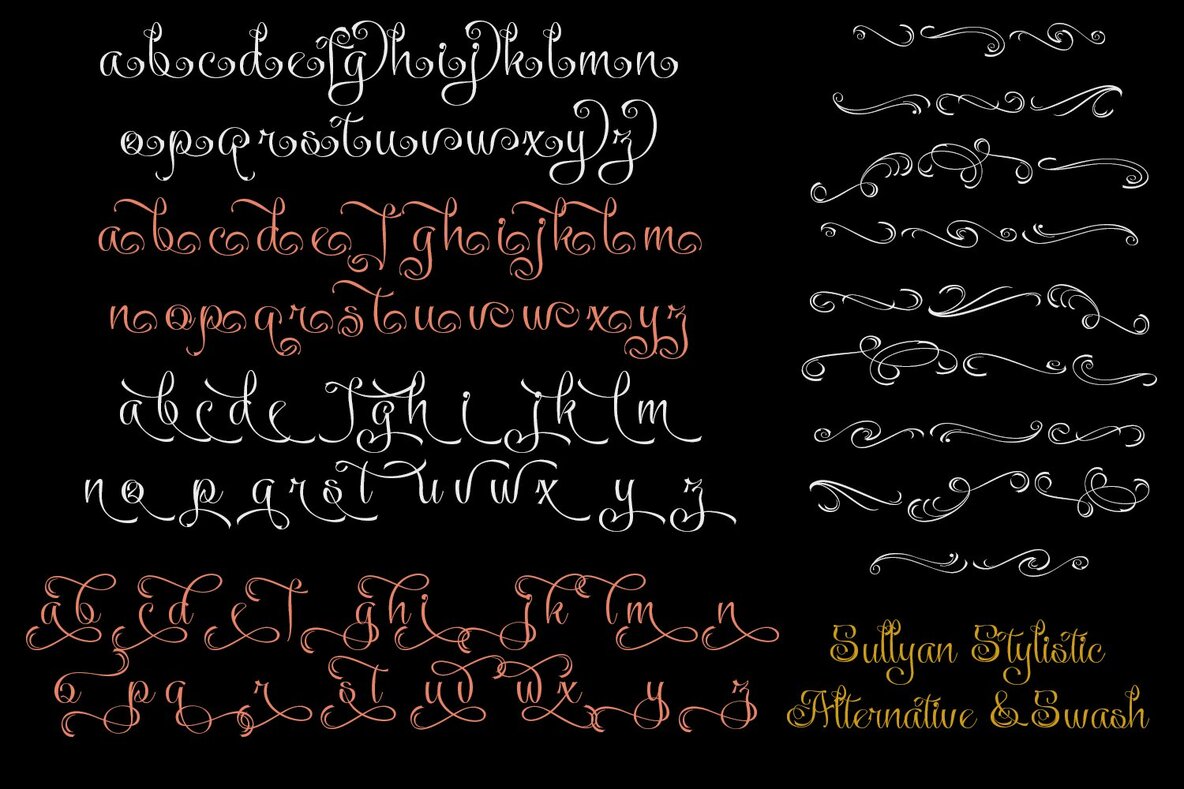 abcdefghijklmn
opqrstuvwxyz
abcdefghijklm
nopqrstuvwxyz
abcdefghijklm
nopqrstuvwxyz
abcdefghijklmn
opqrstuvwxyz
Sullyan Stylistic
Alternative & Swash